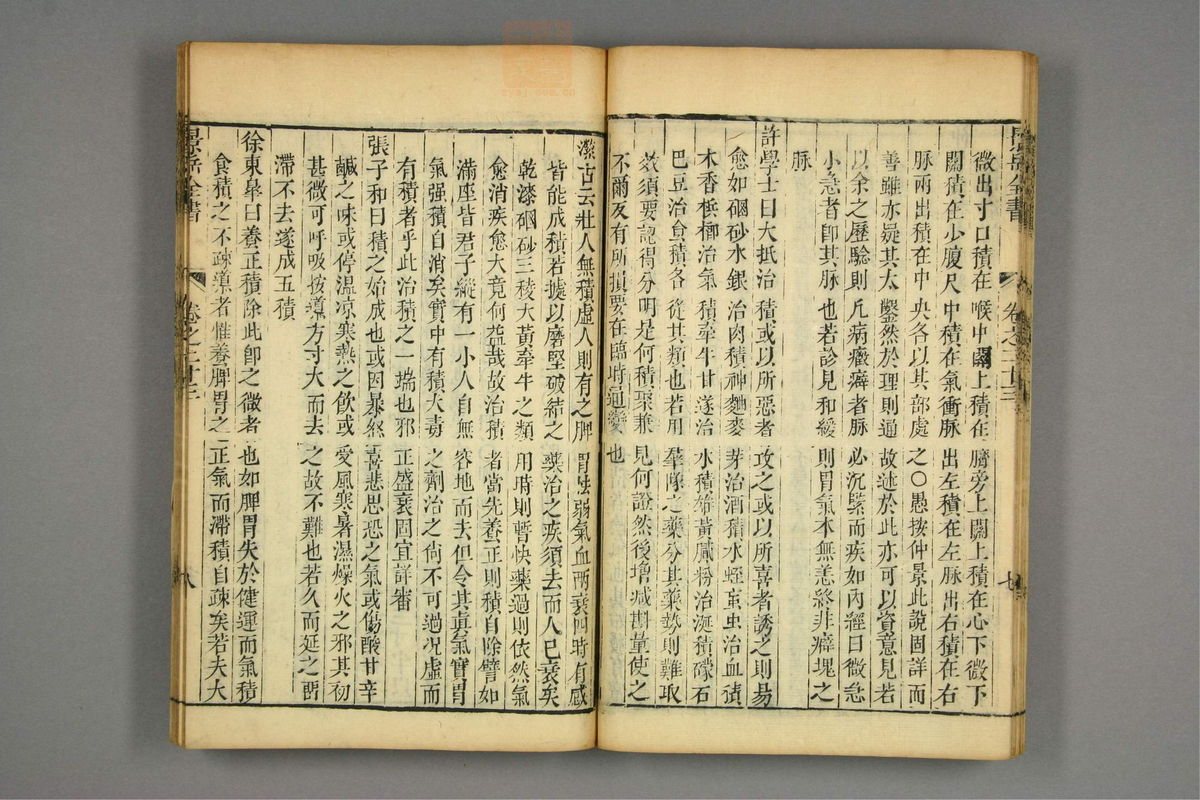 景岳全書
卷之二十三
七
微出寸口積在喉中關上積在臍旁上關上積在心下微下
關積在少腹尺中積在氣衝脉出左積在左脉出右積在右
脉兩出積在中央各以其部處之○愚按仲景此說固詳而
善雖亦疑其太鑿然於理則通故述於此亦可以資意見若
以余之歷驗則凡病癥癖者脉必沉緊而疾如內經曰微急
小急者卽其脉也若診見和緩則胃氣本無恙終非癖塊之
脉
許學士曰大抵治積或以所惡者攻之或以所喜者誘之則易
愈如硇砂水銀治肉積神麯麥芽治酒積水蛭䖟虫治血積
木香檳榔治氣積牽牛甘遂治水積雄黃膩粉治涎積礞石
巴豆治食積各從其類也若用羣隊之藥分其藥勢則難取
效須要認得分明是何積聚兼見何證然後增減斟量使之
不爾反有所損要在臨時通變也
潔古云壯人無積虛人則有之脾胃怯弱氣血兩衰四時有感
皆能成積若據以磨堅破結之藥治之疾須去而人已衰矣
乾漆硇砂三稜大黃牽牛之類用時則暫快藥過則依然氣
愈消疾愈大竟何益哉故治積者當先養正則積自除譬如
滿座皆君子縱有一小人自無容地而去但令其眞氣實胃
氣强積自消矣實中有積大毒之劑治之尙不可過况虛而
有積者乎此治積之一端也邪正盛衰固宜詳審
張子和曰積之始成也或因暴怒喜悲思恐之氣或傷酸甘辛
鹹之味或停溫凉寒熱之飲或受風寒暑濕燥火之邪其初
甚微可呼吸按導方寸大而去之故不難也若久而延之畱
滯不去遂成五積
徐東皋曰養正積除此卽之微者也如脾胃失於健運而氣積
食積之不疎導者惟養脾胃之正氣而滯積自疎矣若夫大
景岳全書
卷之二十三
八